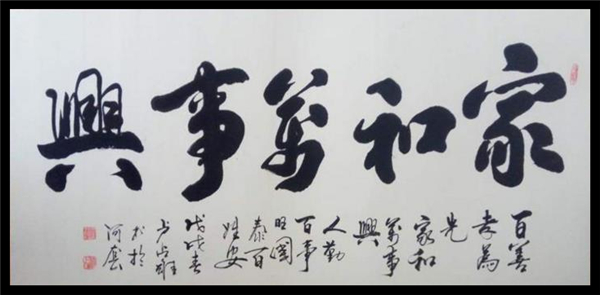 家和萬事興
百善
孝為
先
家和
萬事
興
人勤
百事
旺國
泰百
姓安
戊戌春
书於
河套